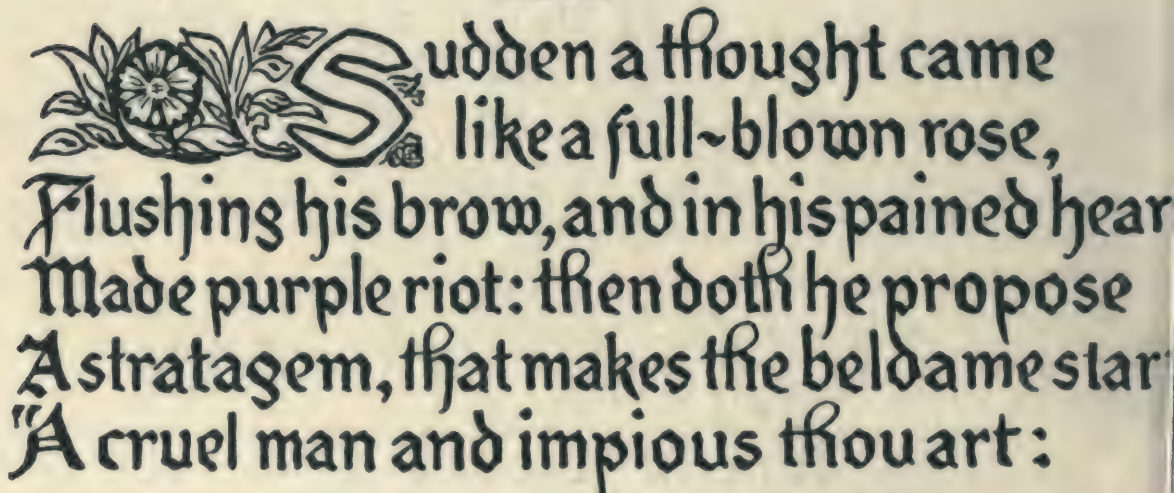 Sudden a thought came
like a full-blown rose,
Flushing his brow, and in his pained hear
Made purple riot: then doth he propose
A stratagem, that makes the beldame star
"A cruel man and impious thou art: